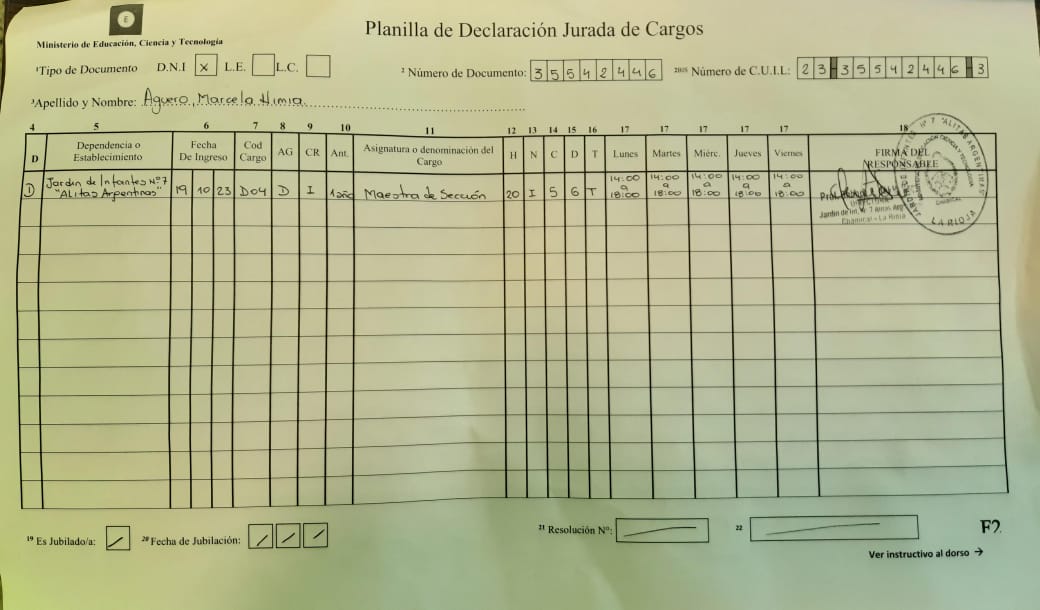 Ministerio de Educación, Ciencia y Tecnología
Planilla de Declaración Jurada de Cargos
¹Tipo de Documento D.N.I x L.E. L.C.
² Número de Documento: 3 5 5 4 2 4 4 6
²ᴮᴵˢ Número de C.U.I.L: 2 3 - 3 5 5 4 2 4 4 6 - 3
³Apellido y Nombre: Aguero, Marcela Nimia.
4 5 6 7 8 9 10 11 12 13 14 15 16 17 17 17 17 17 18
D Dependencia o Establecimiento Fecha De Ingreso Cod Cargo AG CR Ant. Asignatura o denominación del Cargo H N C D T Lunes Martes Miérc. Jueves Viernes FIRMA DEL RESPONSABLE
D Jardin de Infantes Nº7 "Alitas Argentinas" 19 10 23 D04 D I 1año Maestra de Sección 20 I 5 6 T 14:00 a 18:00 14:00 a 18:00 14:00 a 18:00 14:00 a 18:00 14:00 a 18:00
Jardin de Inf. Nº 7 Alitas Arg.
Chamical - La Rioja
Nº 7 "ALITAS ARGENTINAS"
CHAMICAL
LA RIOJA
¹⁹ Es Jubilado/a: / ²⁰ Fecha de Jubilación: / / /
²¹ Resolución Nº:
22
F2.
Ver instructivo al dorso →